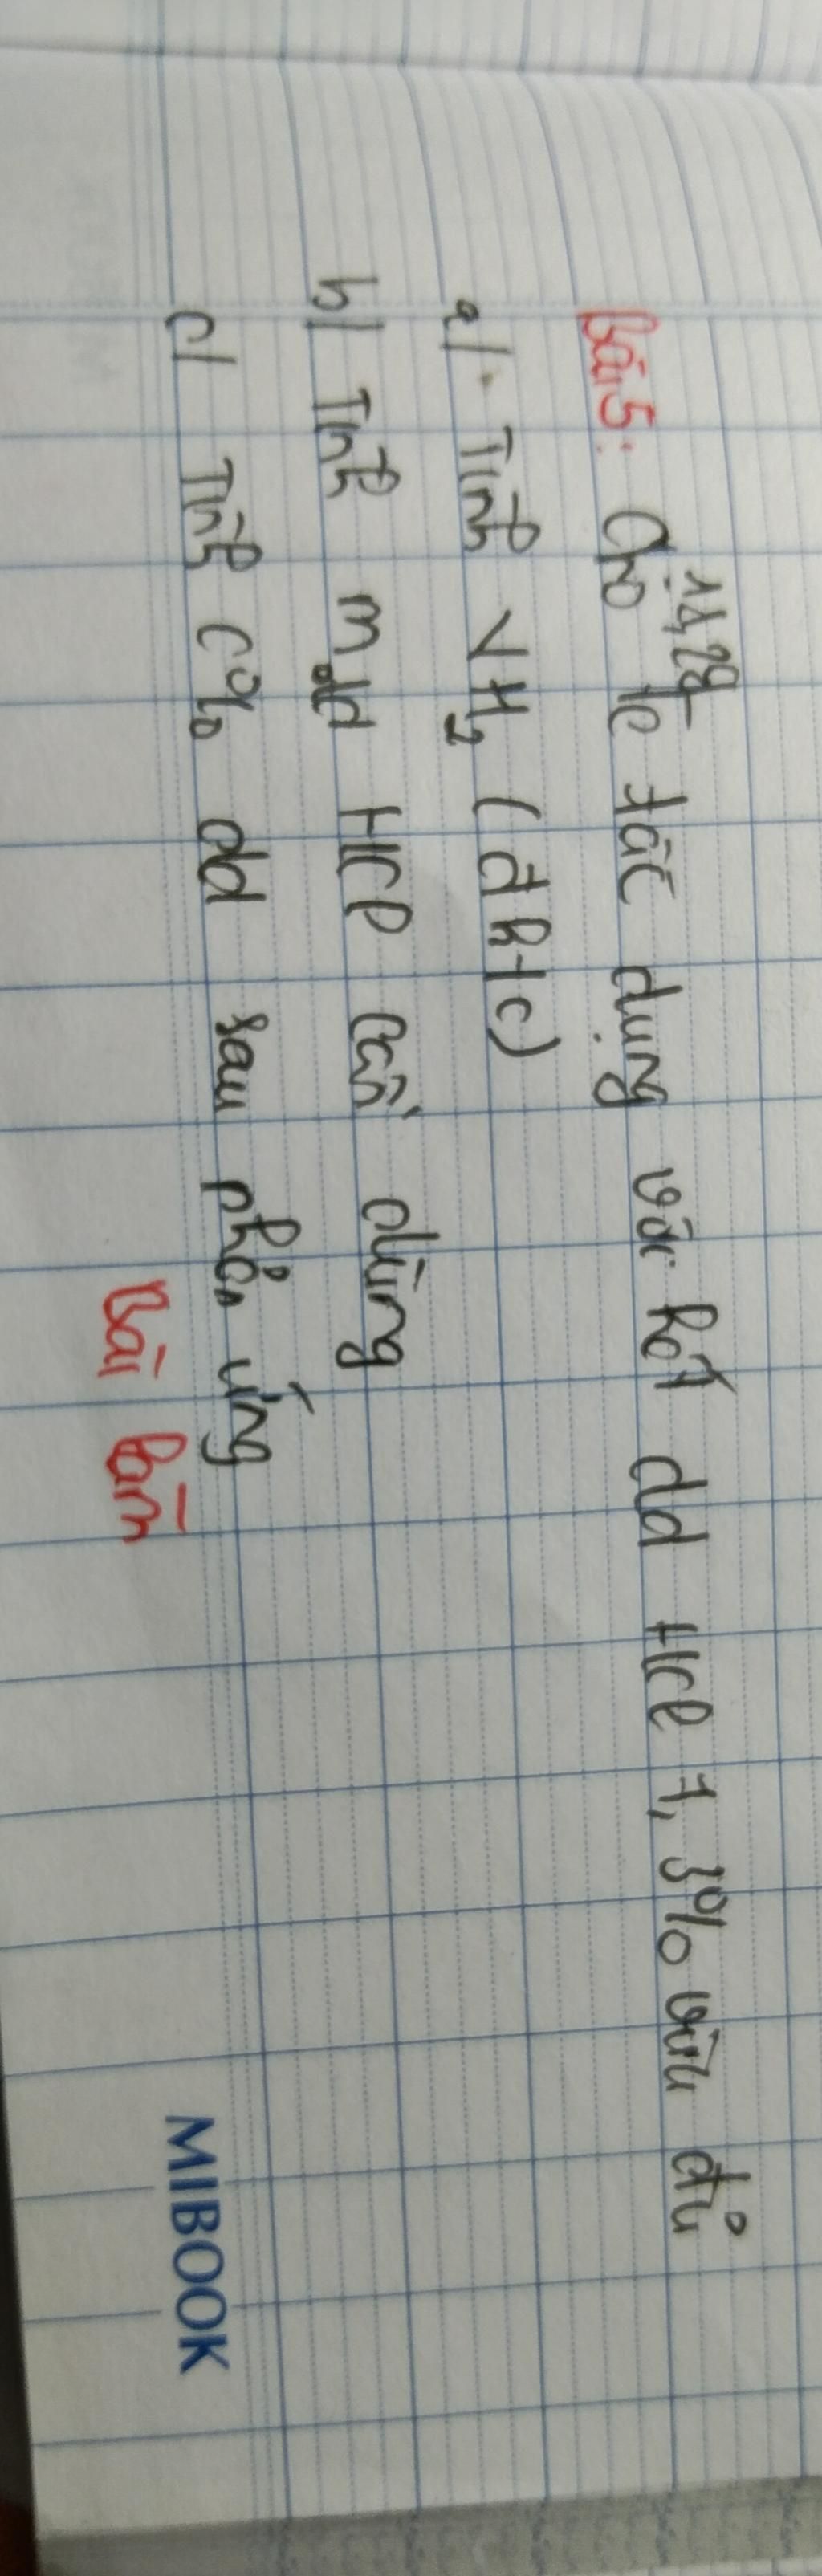 Bài 5: Cho 11,2g Fe tác dụng với hết dd HCl 7,3% vừa đủ
a/. Tính VH₂ (đktc)
b/ Tính mdd HCl cần dùng
c/ Tính C% dd sau phản ứng
Bài làm
MIBOOK